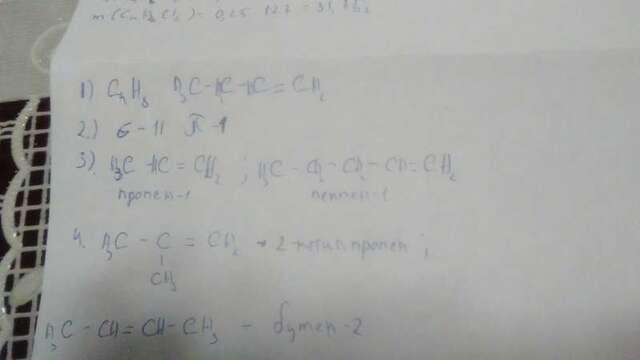 m(C₄H₈Cl₂) = 0,25 · 127 = 31,75г
1) C₄H₈ H₃C-H₂C-HC=CH₂
2.) б-11 π-1
3) H₃C-HC=CH₂ ; H₃C-CH₂-CH₂-CH=CH₂
пропен-1 пентен-1
4. H₃C - C = CH₂ → 2-метилпропен ;
CH₃
H₃C - CH=CH-CH₃ - бутен-2